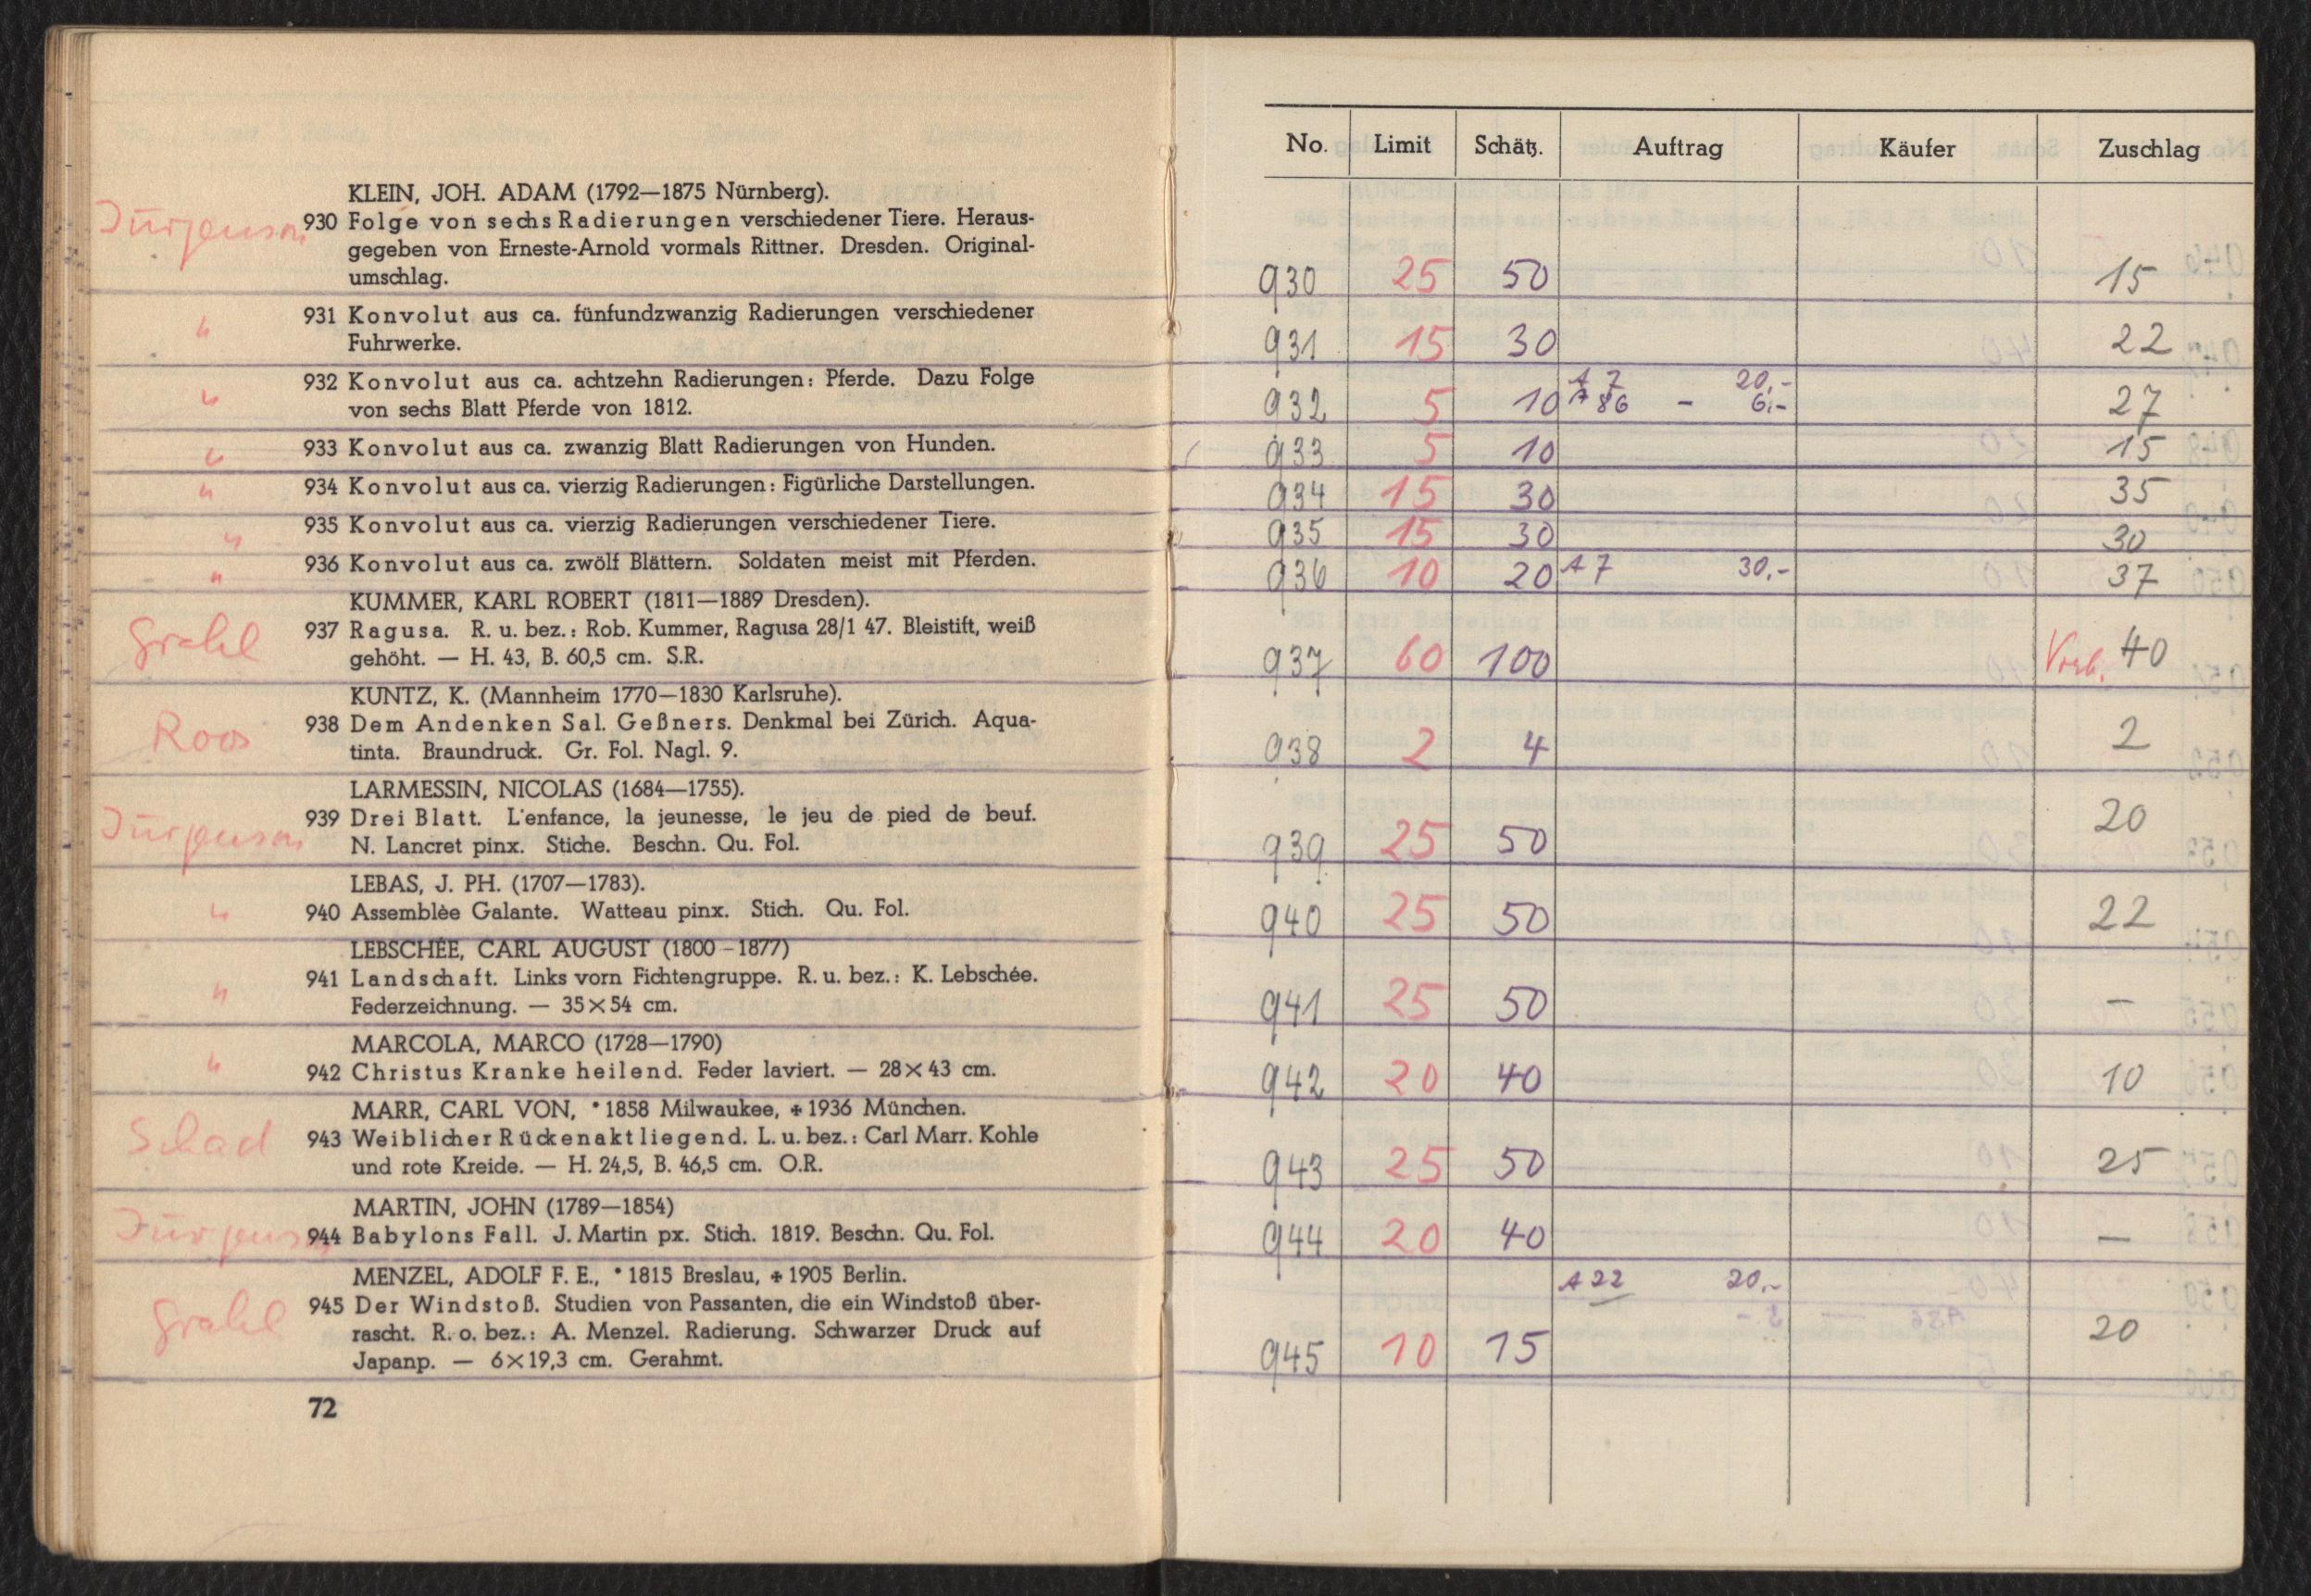 KLEIN, JOH. ADAM (1792—1875 Nürnberg).
Jürgensen 930 Folge von sechs Radierungen verschiedener Tiere. Heraus-
gegeben von Erneste-Arnold vormals Rittner. Dresden. Original-
umschlag.
" 931 Konvolut aus ca. fünfundzwanzig Radierungen verschiedener
Fuhrwerke.
" 932 Konvolut aus ca. achtzehn Radierungen: Pferde. Dazu Folge
von sechs Blatt Pferde von 1812.
" 933 Konvolut aus ca. zwanzig Blatt Radierungen von Hunden.
" 934 Konvolut aus ca. vierzig Radierungen: Figürliche Darstellungen.
" 935 Konvolut aus ca. vierzig Radierungen verschiedener Tiere.
" 936 Konvolut aus ca. zwölf Blättern. Soldaten meist mit Pferden.
KUMMER, KARL ROBERT (1811—1889 Dresden).
Grahl 937 Ragusa. R. u. bez.: Rob. Kummer, Ragusa 28/1 47. Bleistift, weiß
gehöht. — H. 43, B. 60,5 cm. S.R.
KUNTZ, K. (Mannheim 1770—1830 Karlsruhe).
Roos 938 Dem Andenken Sal. Geßners. Denkmal bei Zürich. Aqua-
tinta. Braundruck. Gr. Fol. Nagl. 9.
LARMESSIN, NICOLAS (1684—1755).
Jürgensen 939 Drei Blatt. L'enfance, la jeunesse, le jeu de pied de beuf.
N. Lancret pinx. Stiche. Beschn. Qu. Fol.
LEBAS, J. PH. (1707—1783).
" 940 Assemblèe Galante. Watteau pinx. Stich. Qu. Fol.
LEBSCHÉE, CARL AUGUST (1800-1877)
" 941 Landschaft. Links vorn Fichtengruppe. R. u. bez.: K. Lebschée.
Federzeichnung. — 35×54 cm.
MARCOLA, MARCO (1728—1790)
" 942 Christus Kranke heilend. Feder laviert. — 28×43 cm.
MARR, CARL VON, *1858 Milwaukee, +1936 München.
Schad 943 Weiblicher Rückenakt liegend. L. u. bez.: Carl Marr. Kohle
und rote Kreide. — H. 24,5, B. 46,5 cm. O.R.
MARTIN, JOHN (1789—1854)
Jürgensen 944 Babylons Fall. J. Martin px. Stich. 1819. Beschn. Qu. Fol.
MENZEL, ADOLF F. E., *1815 Breslau, +1905 Berlin.
Grahl 945 Der Windstoß. Studien von Passanten, die ein Windstoß über-
rascht. R. o. bez.: A. Menzel. Radierung. Schwarzer Druck auf
Japanp. — 6×19,3 cm. Gerahmt.
72
No. Limit Schätz. Auftrag Käufer Zuschlag
930 25 50 15
931 15 30 22
A 7 20,-
932 5 10 A 86 - 6,- 27
933 5 10 15
934 15 30 35
935 15 30 30
936 10 20 A 7 30,- 37
937 60 100 Vorb. 40
938 2 4 2
939 25 50 20
940 25 50 22
941 25 50 —
942 20 40 10
943 25 50 25
944 20 40 —
A 22 20,-
945 10 15 20